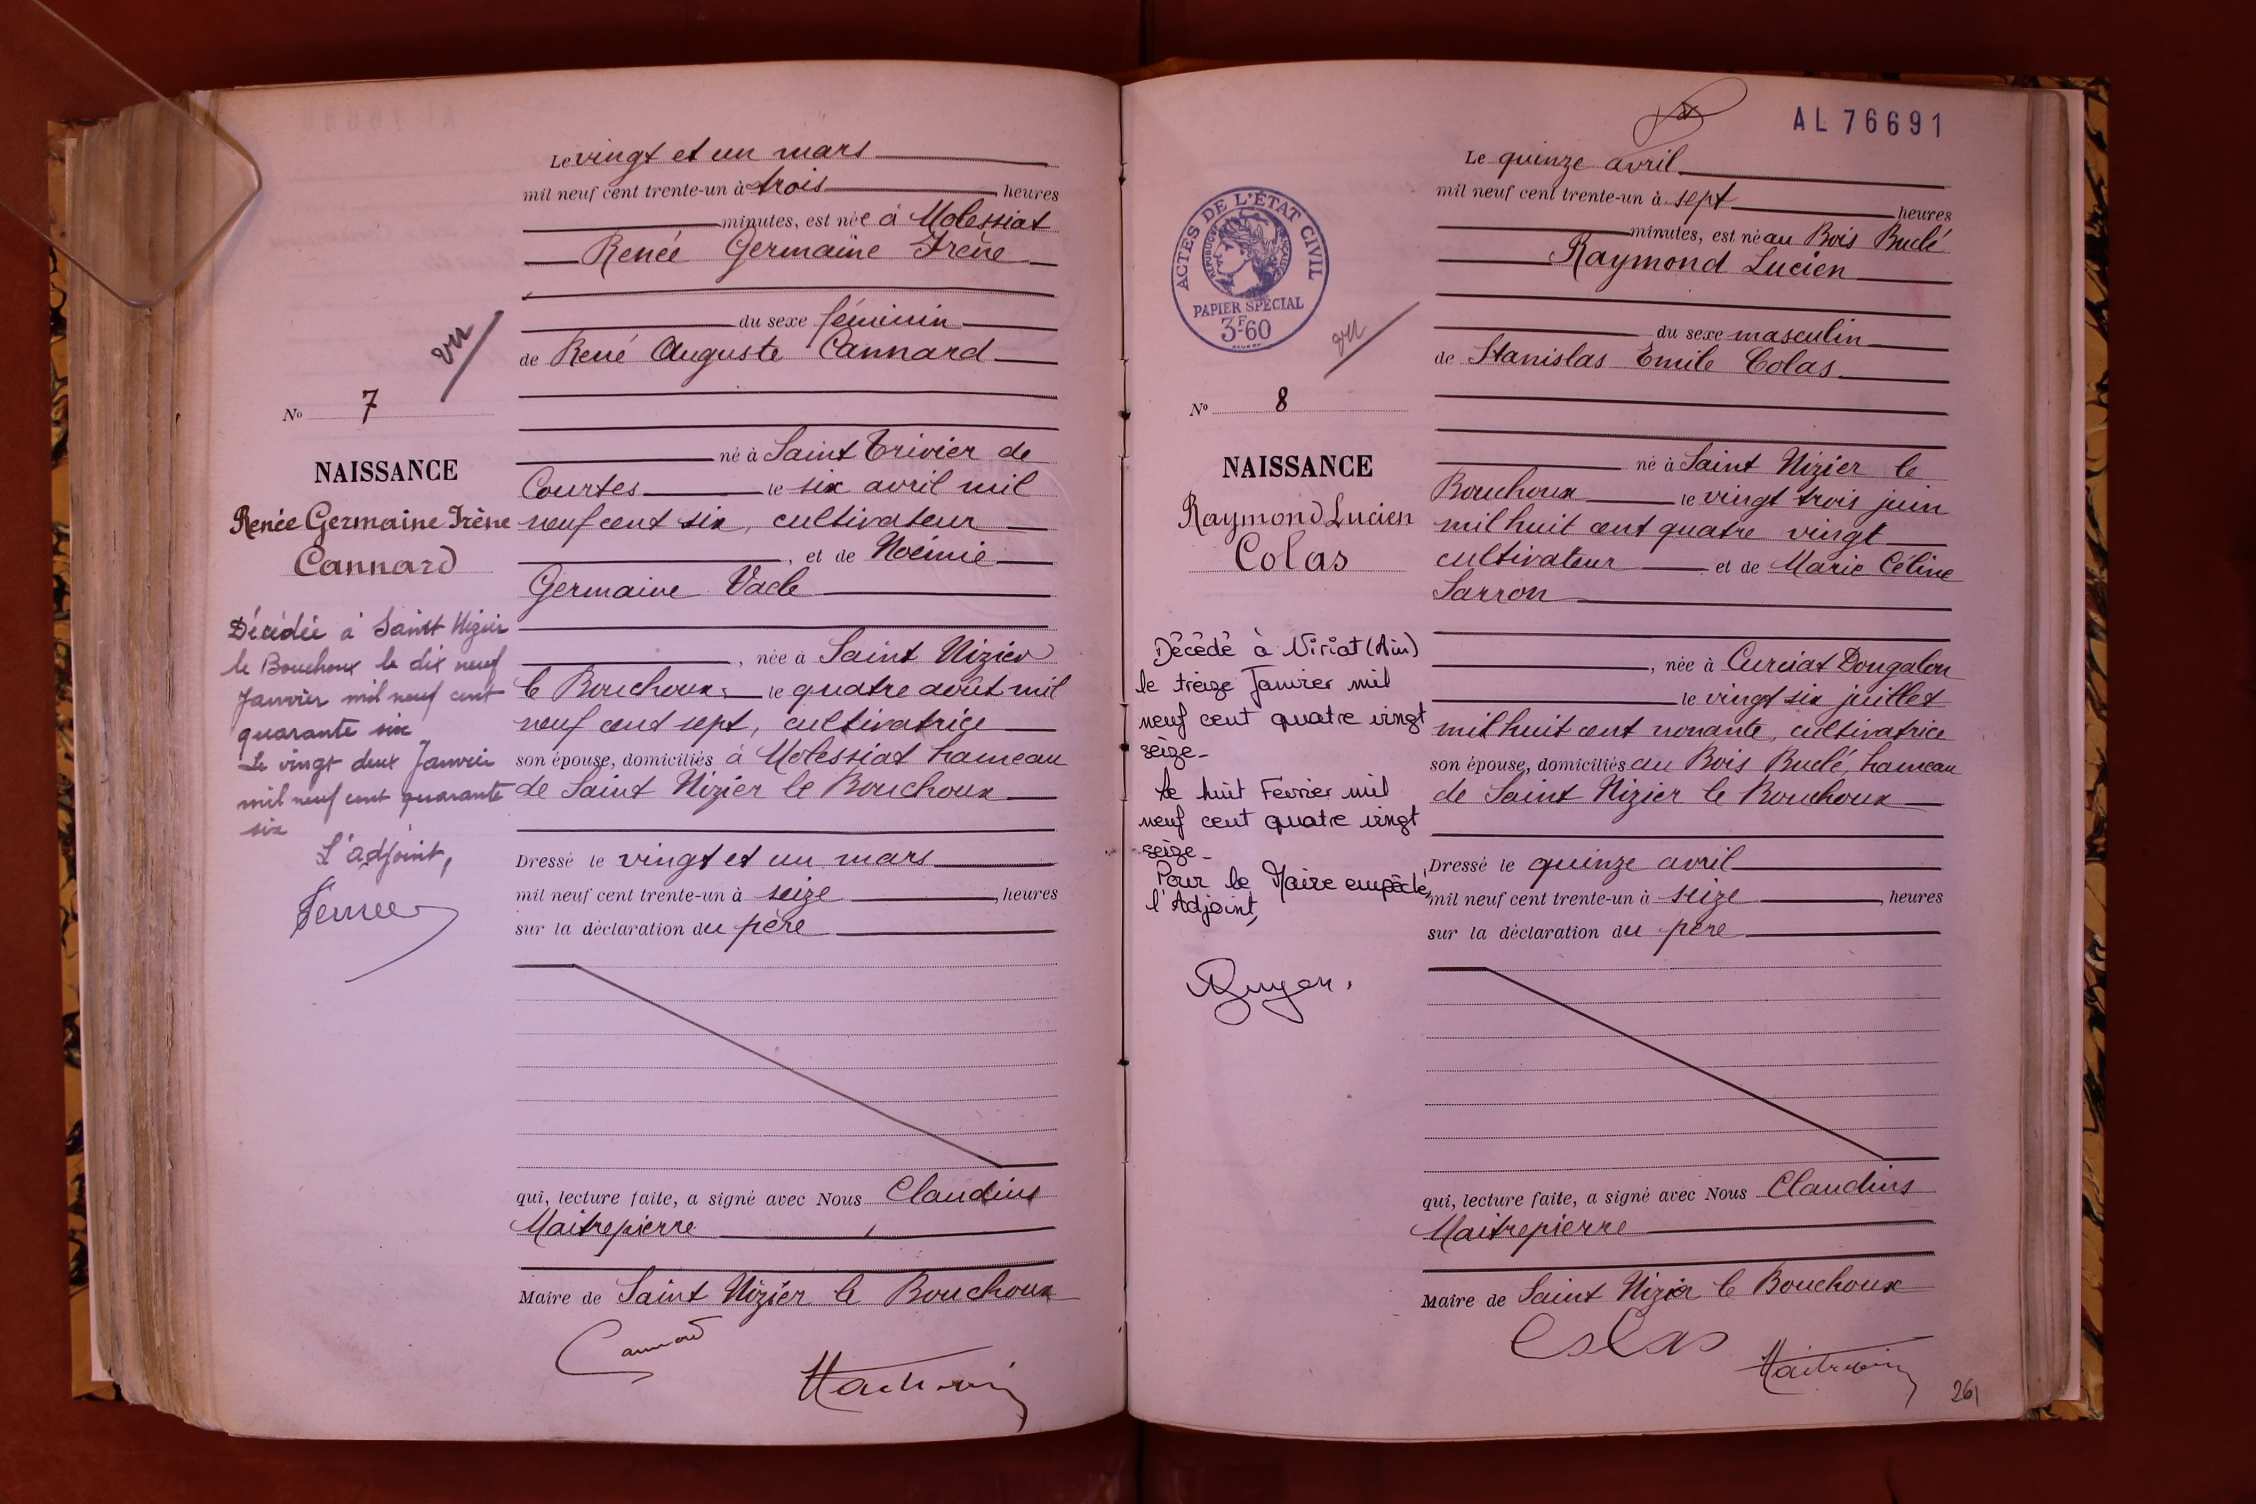 Le vingt et un mars
mil neuf cent trente-un à trois heures
minutes, est née à Molessiat
Renée Germaine Irène
du sexe féminin
vu
de René Auguste Cannard
No 7
NAISSANCE
Renée Germaine Irène
Cannard
né à Saint Trivier de
Courtes le six avril mil
neuf cent six, cultivateur
, et de Noémie
Germaine Vacle
, née à Saint Nizier
le Bouchoux, le quatre août mil
neuf cent sept, cultivatrice
son épouse, domiciliés à Molessiat hameau
de Saint Nizier le Bouchoux
Décédée à Saint Nizier
le Bouchoux le dix neuf
Janvier mil neuf cent
quarante six
Le vingt deux Janvier
mil neuf cent quarante
six
L'adjoint,
Dressé le vingt et un mars
mil neuf cent trente-un à seize, heures
sur la déclaration du père
qui, lecture faite, a signé avec Nous Claudius
Maitrepierre,
Maire de Saint Nizier le Bouchoux
Cannard
AL 76691
Le quinze avril
mil neuf cent trente-un à sept heures
minutes, est né au Bois Buclé
Raymond Lucien
du sexe masculin
de Stanislas Emile Colas
ACTES DE L'ÉTAT CIVIL
RÉPUBLIQUE FRANÇAISE
PAPIER SPÉCIAL
3F60
vu
No 8
NAISSANCE
Raymond Lucien
Colas
né à Saint Nizier le
Bouchoux le vingt trois juin
mil huit cent quatre vingt
cultivateur et de Marie Céline
Sarron
, née à Curciat Dongalon
le vingt six juillet
mil huit cent nonante, cultivatrice
son épouse, domiciliés au Bois Buclé, hameau
de Saint Nizier le Bouchoux
Décédé à Viriat (Ain)
le treize Janvier mil
neuf cent quatre vingt
seize_
Le huit Février mil
neuf cent quatre vingt
seize_
Pour le Maire empêché,
l'Adjoint,
Dressé le quinze avril
mil neuf cent trente-un à seize, heures
sur la déclaration du père
qui, lecture faite, a signé avec Nous Claudius
Maitrepierre
Maire de Saint Nizier le Bouchoux
Colas
261